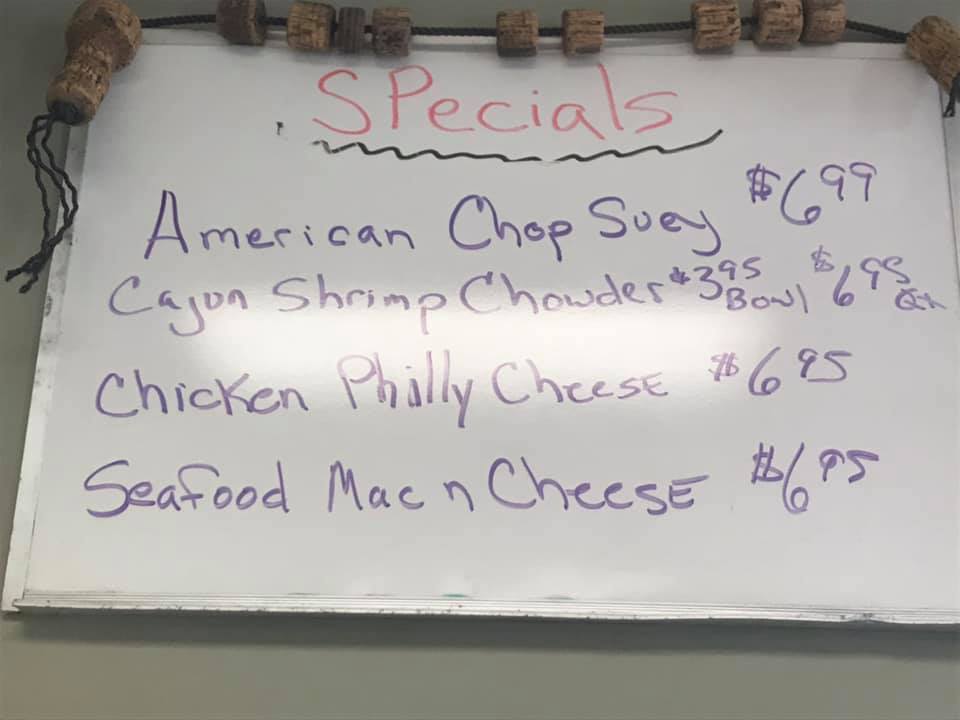 SPecials
American Chop Suey $6.99
Cajun Shrimp Chowder $3.95 Bowl $6.95
Chicken Philly Cheese $6.95
Seafood Mac n Cheese $6.95